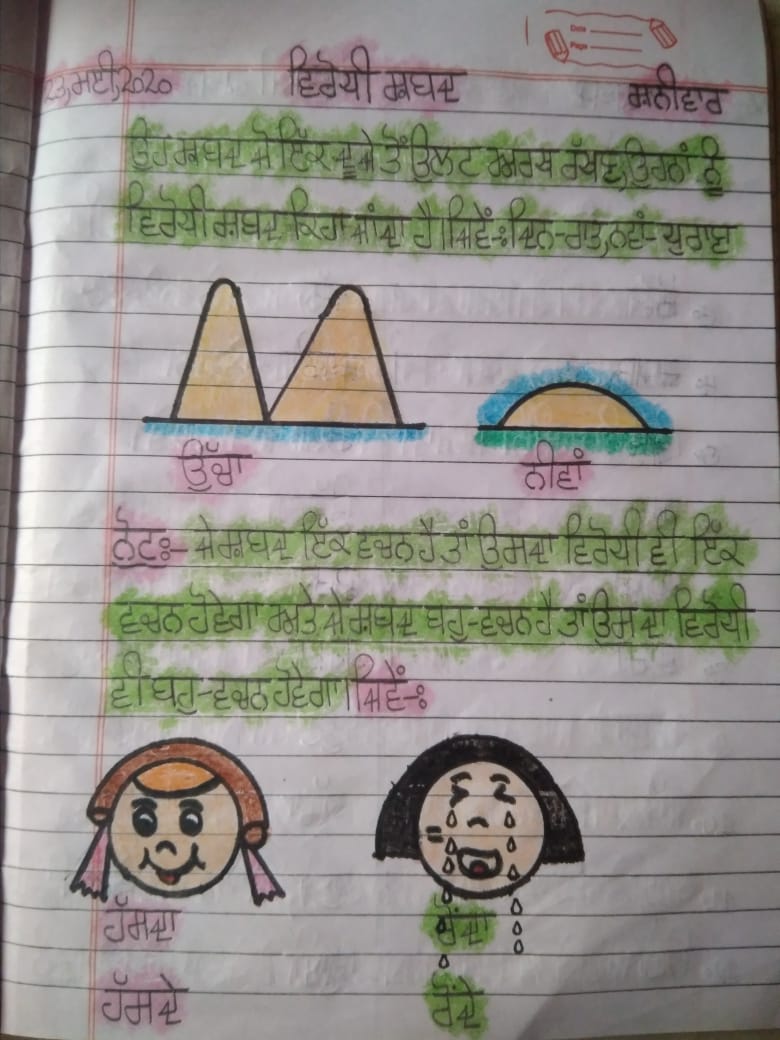 Date
Page
23,ਮਈ,2020 ਵਿਰੋਧੀ ਸ਼ਬਦ ਸ਼ਨੀਵਾਰ
ਉਹ ਸ਼ਬਦ ਜੋ ਇੱਕ-ਦੂਜੇ ਤੋਂ ਉਲਟ ਅਰਥ ਰੱਖਣ,ਉਹਨਾਂ ਨੂੰ
ਵਿਰੋਧੀ ਸ਼ਬਦ ਕਿਹਾ ਜਾਂਦਾ ਹੈ।ਜਿਵੇਂ-:ਦਿਨ-ਰਾਤ,ਨਵਾਂ-ਪੁਰਾਣਾ
ਉੱਚਾ ਨੀਵਾਂ
ਨੋਟ:- ਜੇ ਸ਼ਬਦ ਇੱਕ ਵਚਨ ਹੈ,ਤਾਂ ਉਸਦਾ ਵਿਰੋਧੀ ਵੀ ਇੱਕ
ਵਚਨ ਹੋਵੇਗਾ ਅਤੇ ਜੇ ਸ਼ਬਦ ਬਹੁ-ਵਚਨ ਹੈ ਤਾਂ ਉਸ ਦਾ ਵਿਰੋਧੀ
ਵੀ ਬਹੁ-ਵਚਨ ਹੋਵੇਗਾ।ਜਿਵੇਂ-:
ਹੱਸਦਾ ਰੋਂਦਾ
ਹੱਸਦੇ ਰੋਂਦੇ